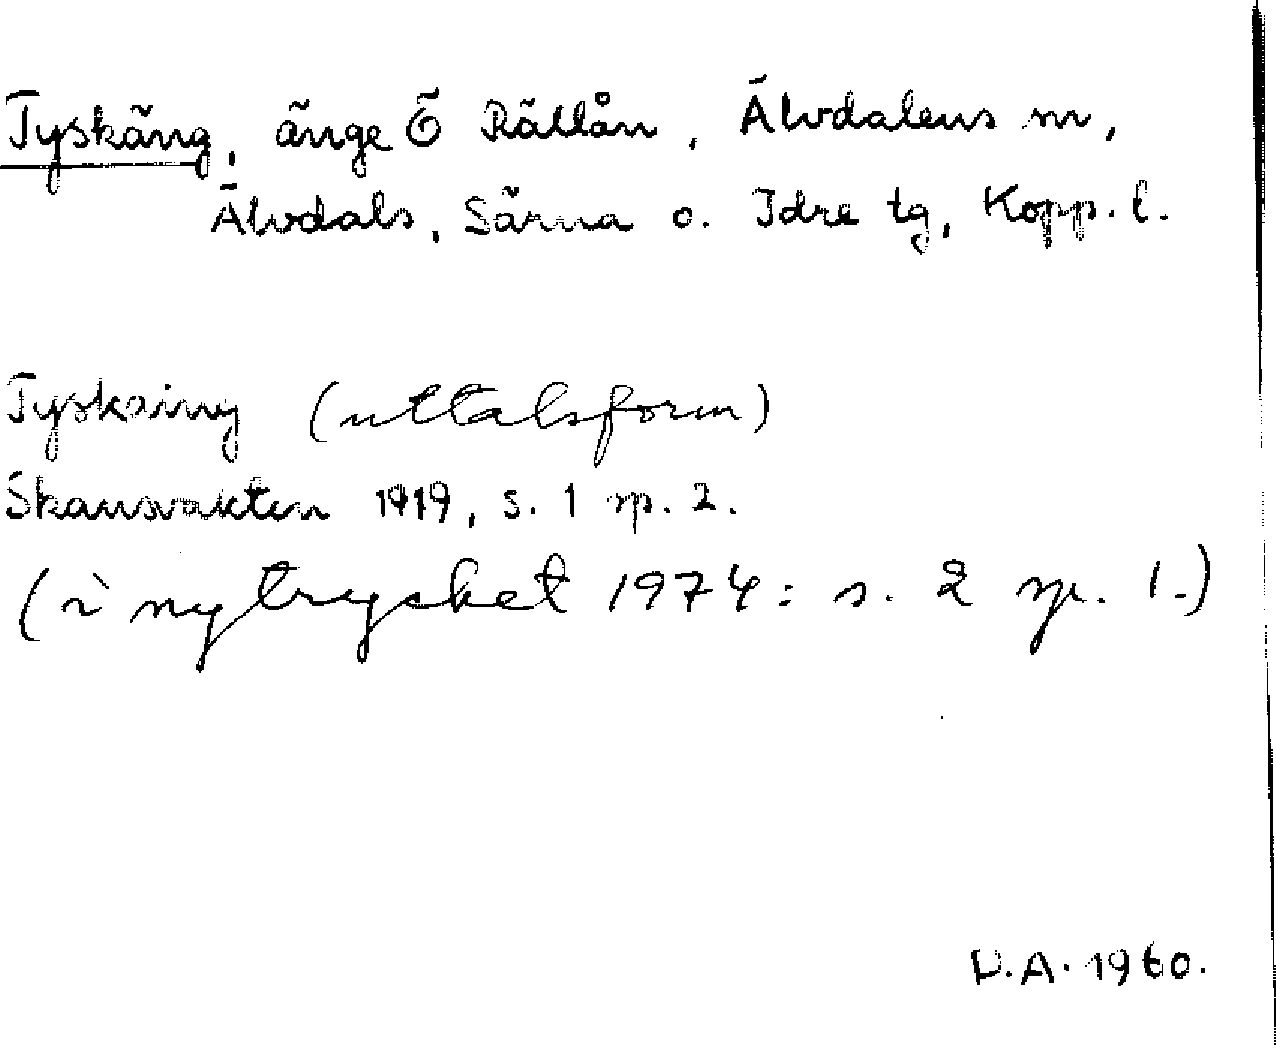 Tyskäng, änge Ö Rällån, Älvdalens sn,
Älvdals, Särna o. Idre tg, Kopp. l.
Tyskaing (uttalsform)
Skansvakten 1919, s. 1 sp. 2.
(i nytrycket 1974: s. 2 sp. 1.)
D.A. 1960.